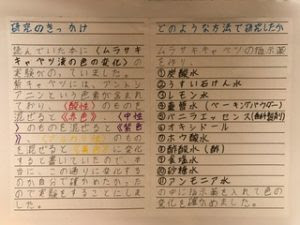 研究のきっかけ
読んでいた本に《ムラサキ
キャベツ液の色の変化》の
実験がのっていました。
紫キャベツには、アントシ
アニンという色素が含まれ
ており、《酸性》のものを
混ぜると《赤色》、《中性》
のものを混ぜると《紫色》
、
混ぜると《黄色》に変化
すると書いていたので、本
当に、この通りに変化する
のか自分で確かめたかった
ので実験をすることにしま
した。
どのような方法で研究したか
ムラサキキャベツの指示薬
を作り、
①炭酸水
②うすい石けん水
③レモン水
④重曹水(ベーキングパウダー)
⑤バニラエッセンス(香料製剤)
⑥オキシドール
⑦ホウ酸水
⑧酢酸水(酢)
⑨食塩水
⑩砂糖水
⑪アンモニア水
の中に指示薬を入れて色の
変化を確かめました。